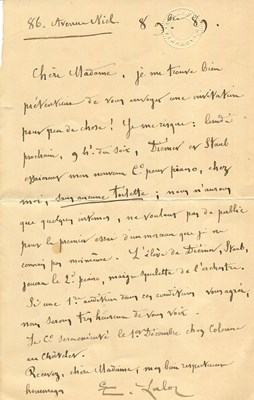 86. Avenue Niel.
8 89.
Chère Madame, je me trouve bien
prétentieux de vous envoyer une invitation
pour peu de chose ! Je me risque : lundi
prochain, 9 h. du soir, Diémer et Staub
essaieront mon nouveau Cº pour piano, chez
moi, sans aucune toilette ; nous n'aurons
que quelques intimes, ne voulant pas de public
pour le premier essai d'un morceau que je ne
connais pas moi-même. L'élève de Diémer, Staub,
jouera le 2d piano, maigre squelette de l'orchestre.
Si une 1re audition dans ces conditions vous agrée,
nous serons très heureux de vous voir.
Le Cº sera exécuté le 1er Décembre chez Colonne
au Châtelet.
Recevez, chère Madame, mes bien respectueux
hommages
E. Lalo